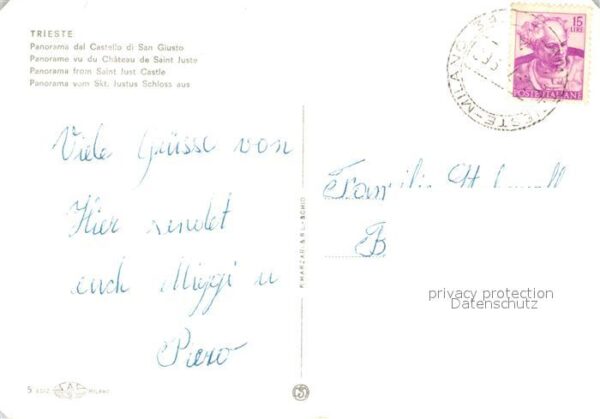 TRIESTE
Panorama dal Castello di San Giusto
Panorama vu du Château de Saint Juste
Panorama from Saint Just Castle
Panorama vom Skt. Iustus Schloss aus
15
LIRE
POSTE ITALIANE
Viele Grüsse von
Hier sendet
euch Miggi u
Piero
Familie
B
privacy protection
Datenschutz
5 EDIZ. SAF MILANO